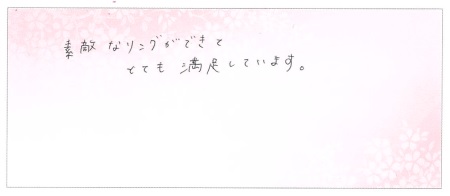 素敵なリングができて
とても満足しています。